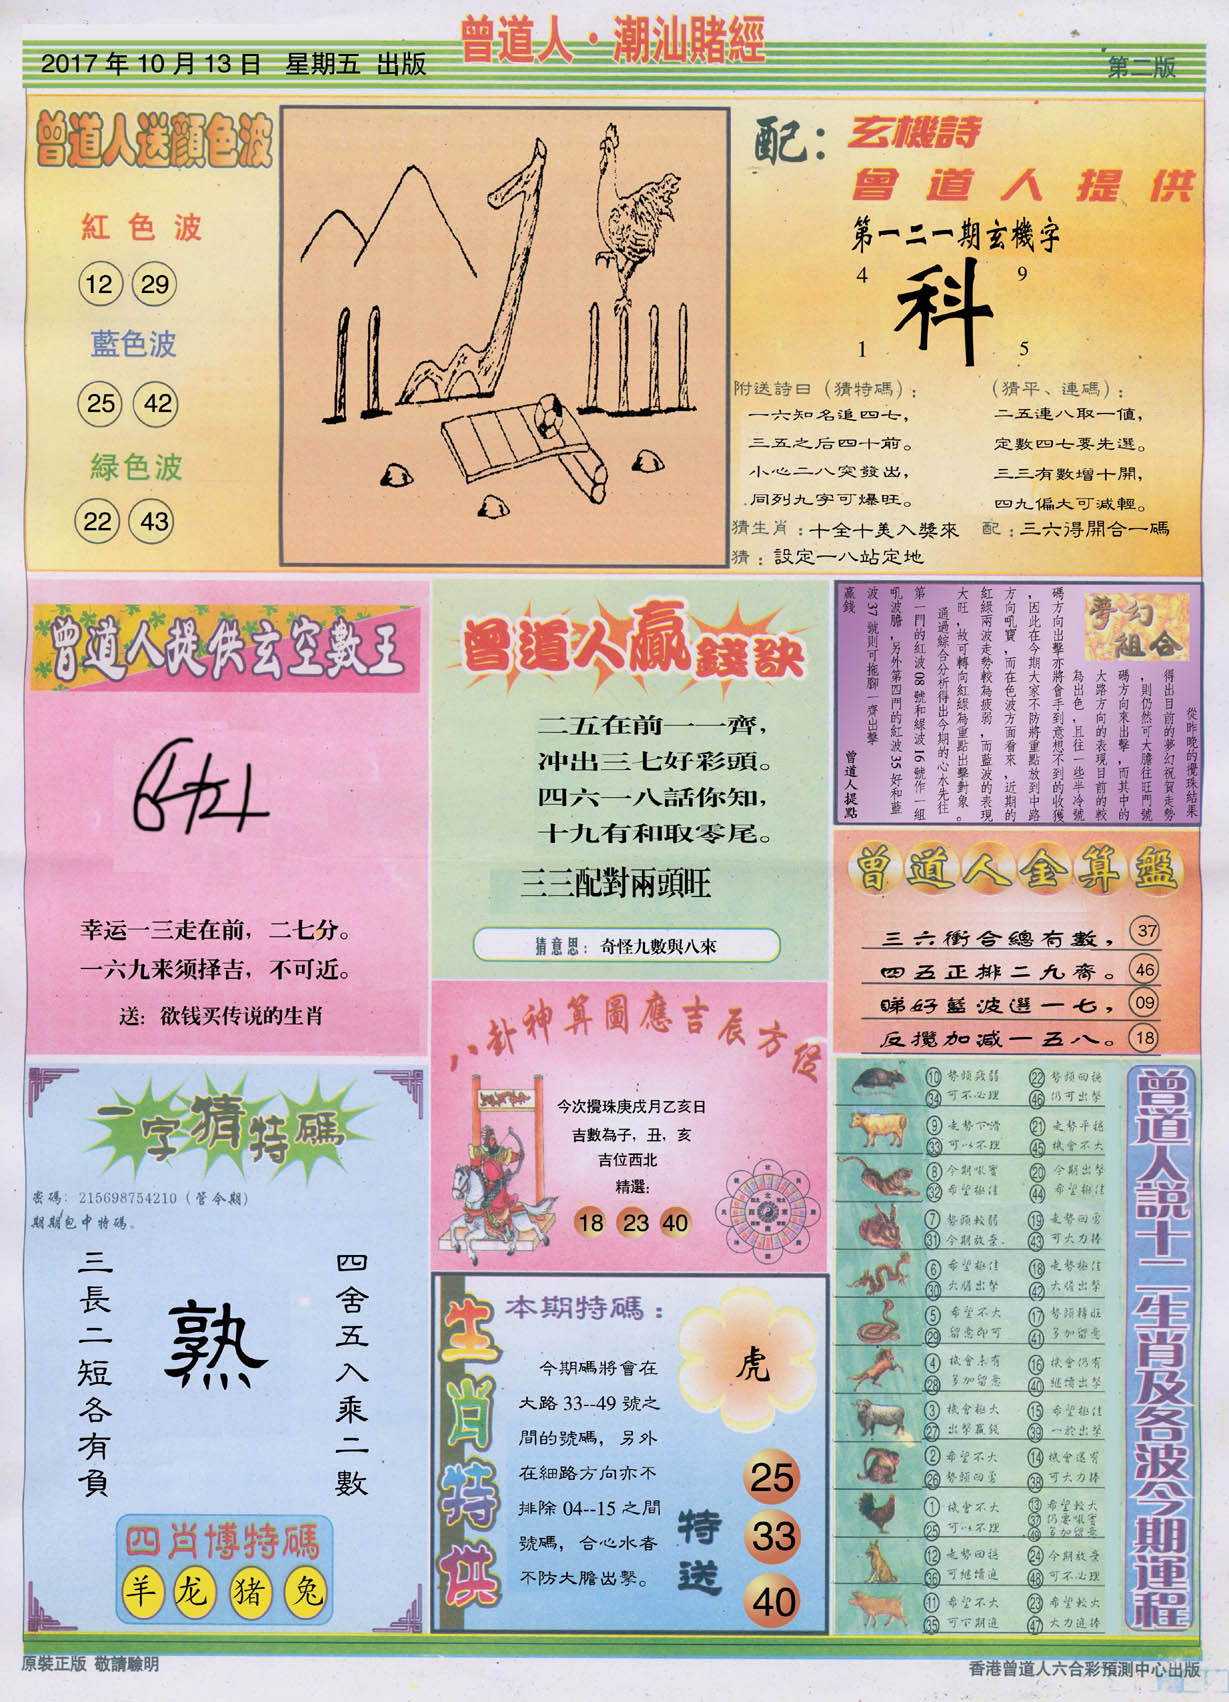 曾道人·潮汕賭經
2017年10月13日 星期五 出版
第二版
曾道人送顏色波
紅色波
12 29
藍色波
25 42
緑色波
22 43
配：玄機詩
曾道人提供
第一二一期玄機字
4 9
科
1 5
附送詩曰（猜特碼）：
一六知名追四七，
三五之后四十前。
小心二八突發出，
同列九字可爆旺。
（猜平、連碼）：
二五連八取一值，
定數四七要先選。
三三有數增十開，
四九偏大可減輕。
猜生肖：十全十美入獎來
配：三六得開合一碼
猜：設定一八站定地
曾道人提供玄空數王
幸运一三走在前，二七分。
一六九来须择吉，不可近。
送：欲钱买传说的生肖
曾道人贏錢訣
二五在前一一齊，
冲出三七好彩頭。
四六一八話你知，
十九有和取零尾。
三三配對兩頭旺
猜意思：奇怪九數與八來
夢幻組合
從昨晚的攪珠結果
得出目前的夢幻祝賀走勢
，則仍然可大膽往旺門號
碼方向來出擊，而其中的
大路方向的表現目前的較
為出色，且往一些半冷號
碼方向出擊亦將會手到意想不到的收獲
，因此在今期大家不防將重點放到中路
方向吼寶，而在色波方面看來，近期的
紅綠兩波走勢較為疲弱，而藍波的表現
大旺，故可轉向紅綠為重點出擊對象。
通過綜合分析得出今期的心水先往
第一門的紅波08號和綠波16號作一組
吼波膽，另外第四門的紅波35好和藍
波37號則可拖腳一齊出擊
贏錢
曾道人提點
曾道人金算盤
三六衝合總有數， 37
四五正排二九齊。 46
睇好藍波選一七， 09
反攪加減一五八。 18
八卦神算圖應吉辰方位
今次攪珠庚戌月乙亥日
吉數為子，丑，亥
吉位西北
精選：
18 23 40
一字猜特碼
密碼：215698754210（管今期）
期期包中特碼。
四舍五入乘二數
熟
三長二短各有負
四肖博特碼
羊 龙 猪 兔
生肖特供
本期特碼：
虎
今期碼將會在
大路33--49號之
間的號碼，另外
在細路方向亦不
排除04--15之間
號碼，合心水者
不防大膽出擊。
特送
25
33
40
曾道人說十二生肖及各波今期運程
10 勢頭疲弱 22 勢頭回穩
34 可不必理 46 仍可出擊
9 走勢下滑 21 走勢平穩
33 可以不理 45 機會不大
8 今期吼寶 20 今期出擊
32 希望極佳 44 希望極佳
7 勢頭較弱 19 走勢回勇
31 今期放棄 43 可大力捧
6 希望極佳 18 走勢極佳
30 大膽出擊 42 大膽出擊
5 希望不大 17 勢頭轉旺
29 留意即可 41 多加留意
4 機會未有 16 機會仍有
28 多加留意 40 繼續出擊
3 機會極大 15 希望極佳
27 出擊贏錢 39 一於出擊
2 希望不大 14 機會還有
26 勢頭回勇 38 可大力捧
1 機會不大 13 希望較大
25 可以不理 37 仍要吼實
49 多加留意
12 走勢回穩 24 今期放棄
36 可繼續追 48 可不必理
11 希望不大 23 希望較大
35 可下期追 47 大力追捧
原裝正版 敬請驗明
香港曾道人六合彩預測中心出版